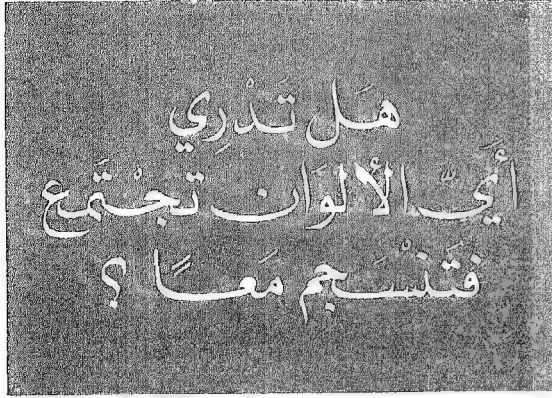 هَل تَدْرِي
أَيّ الألوَان تَجْتَمَع
فَتَنْسَجم مَعًا ؟